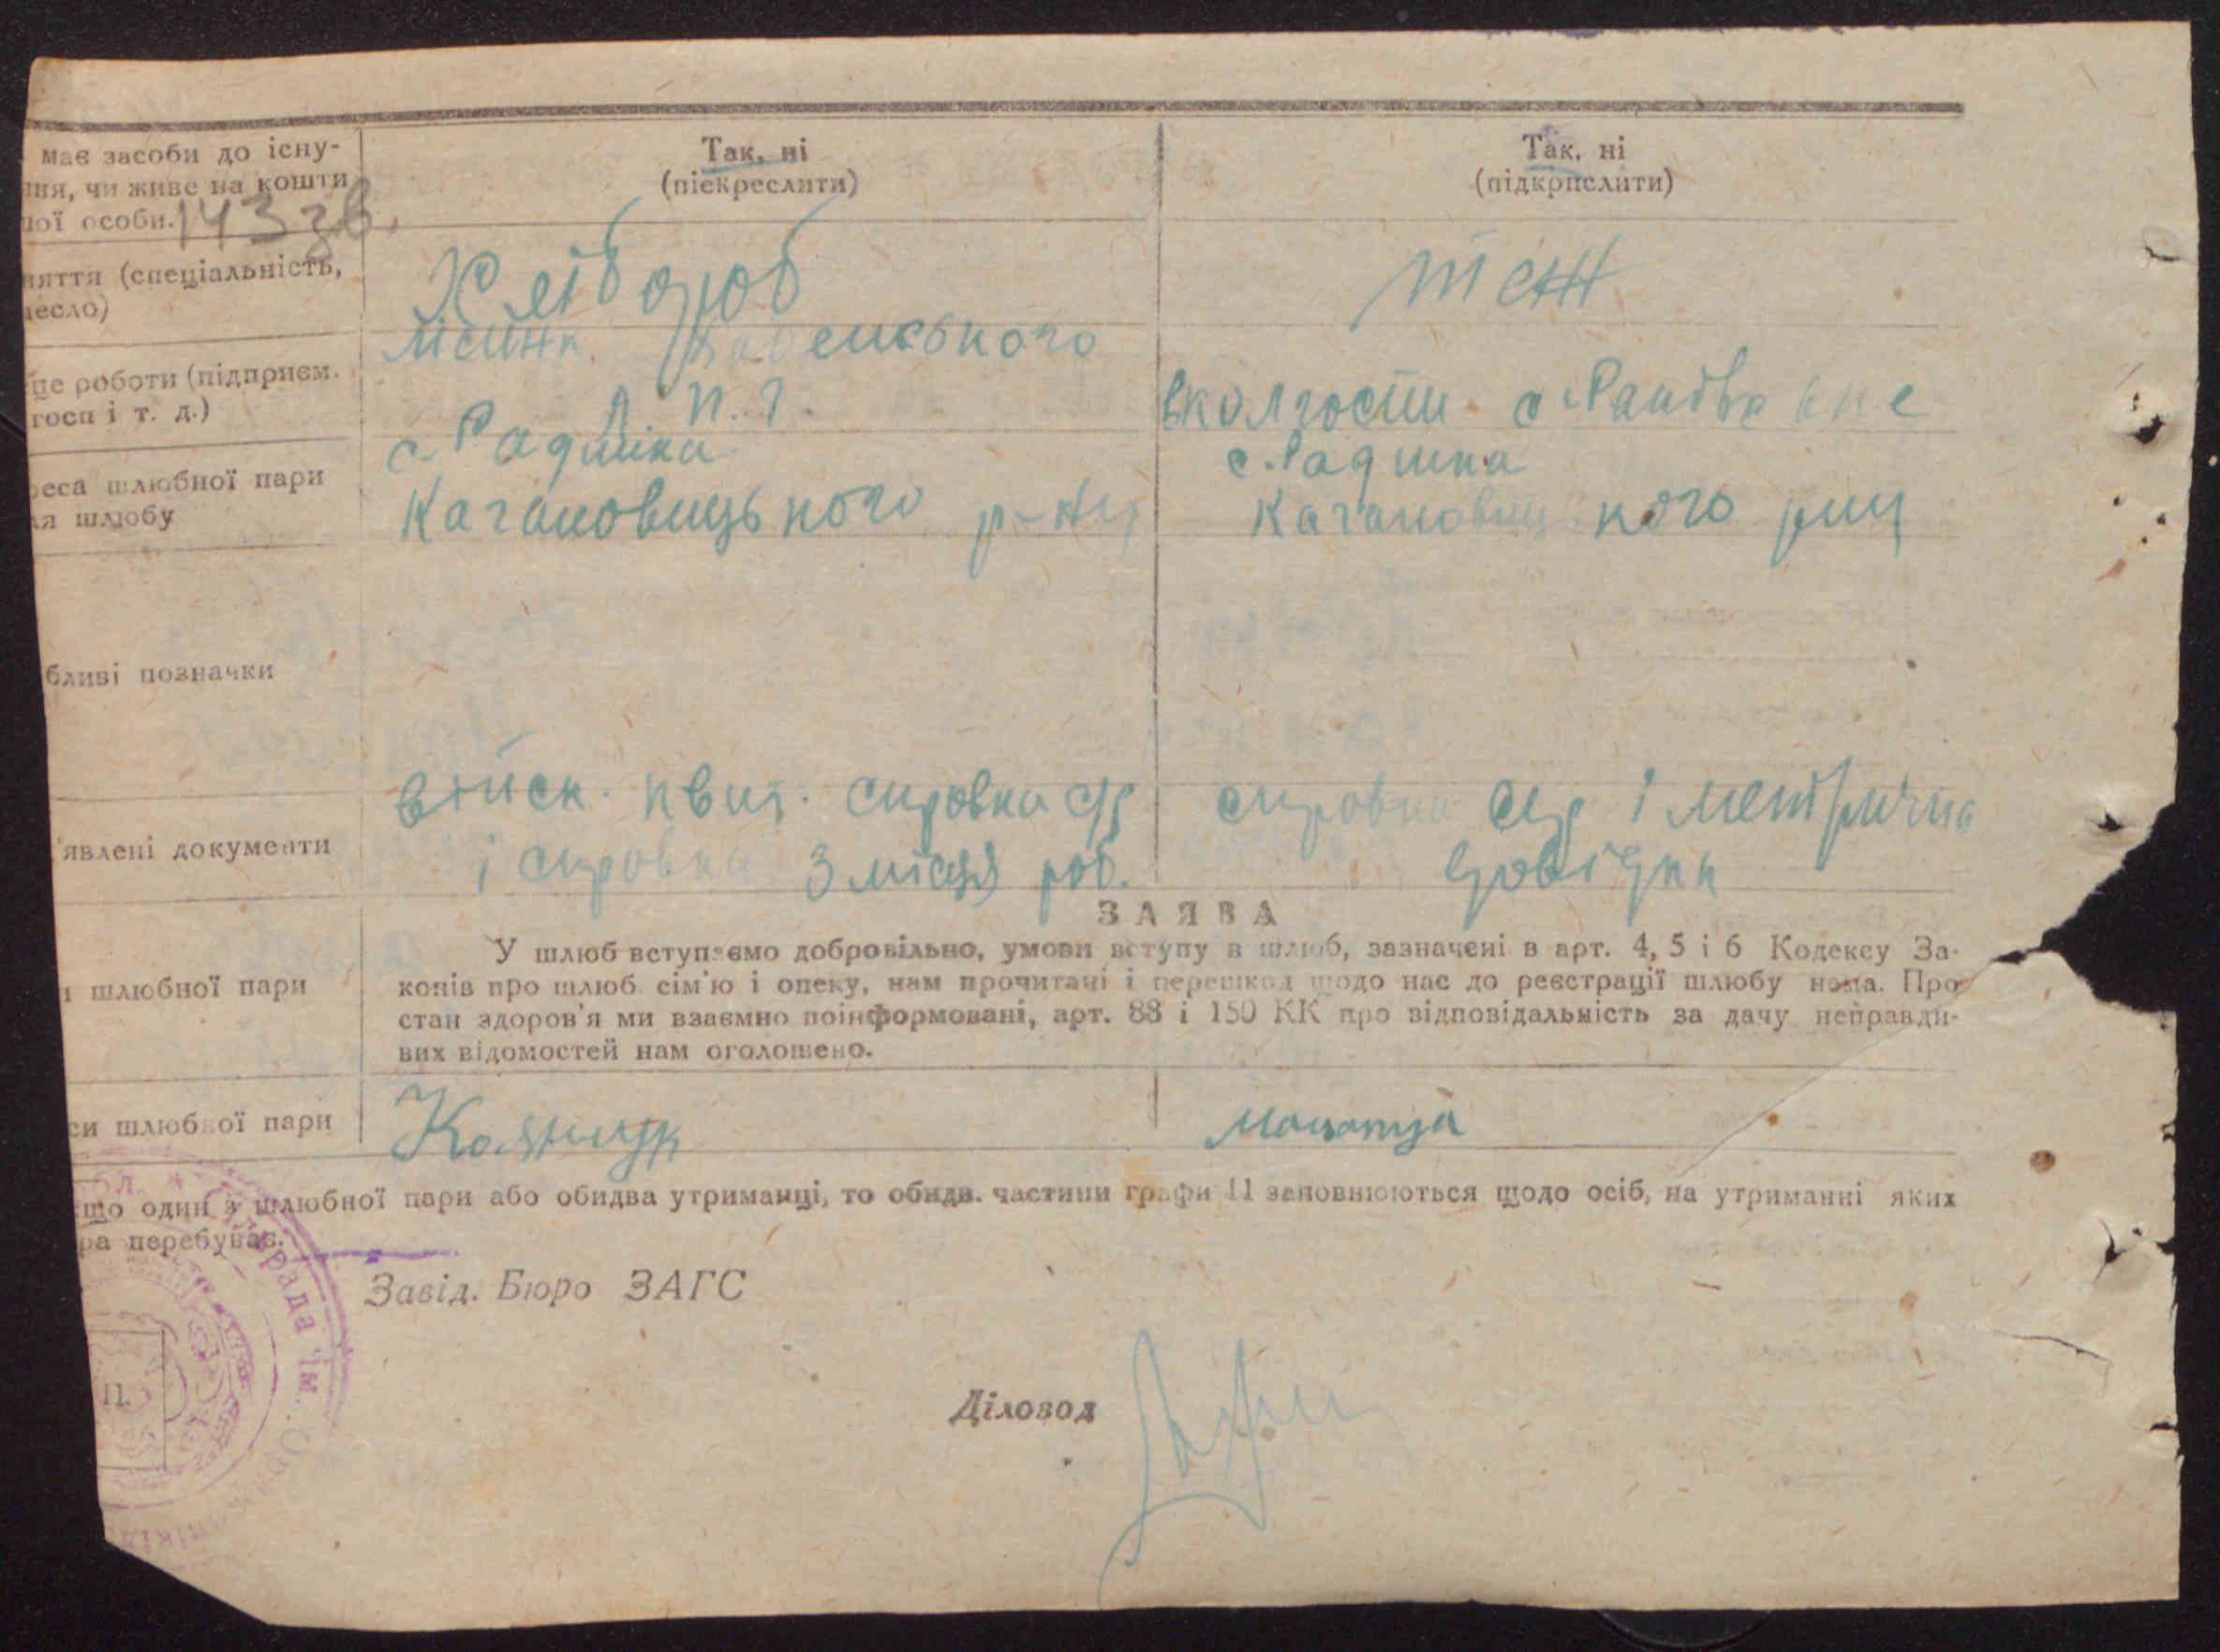 має засоби до існу-
ння, чи живе на кошти
ної особи. 143 зв.
Так, ні
(піекреслити)
Так, ні
(підкрпслити)
няття (спеціальність,
месло)
Хлібороб
теж
це роботи (підприєм.
госп і т. д.)
п. г.
вколгости с
реса шлюбної пари
ля шлюбу
с. Радинка
Кагановицького р-ну
с. Радинка
Кагановицького рну
бливі позначки
'явлені документи
війск. квит. справка с/р
і справка з місця роб.
справка с/р і метрична
довідка
ЗАЯВА
и шлюбної пари
У шлюб вступаємо добровільно, умови вступу в шлюб, зазначені в арт. 4, 5 і 6 Кодексу За-
конів про шлюб сім'ю і опеку, нам прочитані і перешкод щодо нас до реєстрації шлюбу нома. Про
стан здоров'я ми взаємно поінформовані, арт. 88 і 150 КК про відповідальність за дачу неправди-
вих відомостей нам оголошено.
си шлюбної пари
що один з шлюбної пари або обидва утриманці, то обидв. частини графи 11 заповнюються щодо осіб, на утриманні яких
ра перебуває.
рада ім.
П.
Завід. Бюро ЗАГС
Діловод